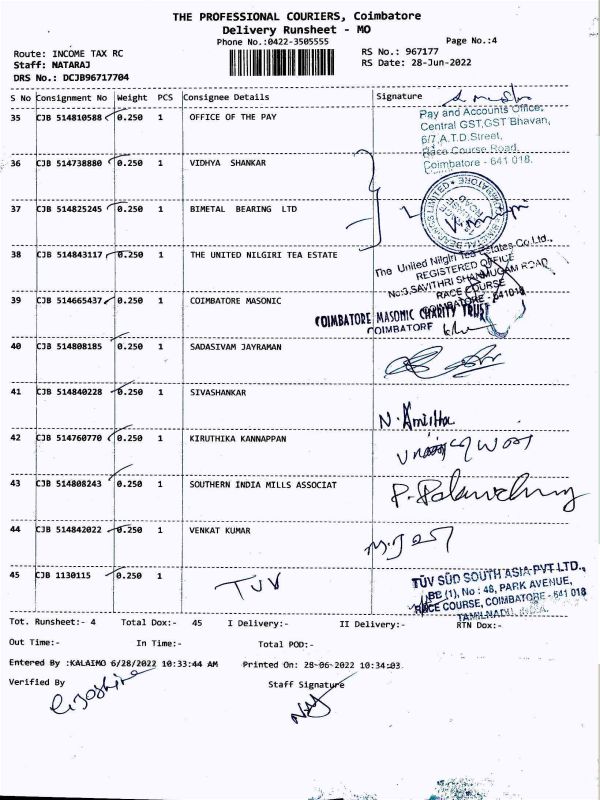 THE PROFESSIONAL COURIERS, Coimbatore
Delivery Runsheet - MO
Phone No.:0422-3505555
Page No.:4
Route: INCOME TAX RC
RS No.: 967177
Staff: NATARAJ
RS Date: 28-Jun-2022
DRS No.: DCJB96717704
S No Consignment No Weight PCS Consignee Details Signature
35 CJB 514810588 0.250 1 OFFICE OF THE PAY
Pay and Accounts Office,
Central GST,GST Bhavan,
6/7,A.T.D.Street,
Race Course Road,
Coimbatore - 641 018.
36 CJB 514738880 0.250 1 VIDHYA SHANKAR
37 CJB 514825245 0.250 1 BIMETAL BEARING LTD
38 CJB 514843117 0.250 1 THE UNITED NILGIRI TEA ESTATE
The United Nilgiri Tea Estates Co.Ltd.,
REGISTERED OFFICE
No:3,SAVITHRI SHANMUGAM ROAD
RACE COURSE
COIMBATORE - 641018
39 CJB 514665437 0.250 1 COIMBATORE MASONIC
COIMBATORE MASONIC CHARITY TRUST
COIMBATORE
40 CJB 514808185 0.250 1 SADASIVAM JAYRAMAN
41 CJB 514840228 0.250 1 SIVASHANKAR
N. Amirtha
42 CJB 514760770 0.250 1 KIRUTHIKA KANNAPPAN
43 CJB 514808243 0.250 1 SOUTHERN INDIA MILLS ASSOCIAT
44 CJB 514842022 0.250 1 VENKAT KUMAR
45 CJB 1130115 0.250 1 TUV
TÜV SÜD SOUTH ASIA PVT LTD.,
BE (1), No : 48, PARK AVENUE,
RACE COURSE, COIMBATORE - 641 018
TAMILNADU, INDIA.
Tot. Runsheet:- 4 Total Dox:- 45 I Delivery:- II Delivery:- RTN Dox:-
Out Time:- In Time:- Total POD:-
Entered By :KALAIMO 6/28/2022 10:33:44 AM Printed On: 28-06-2022 10:34:03
Verified By Staff Signature